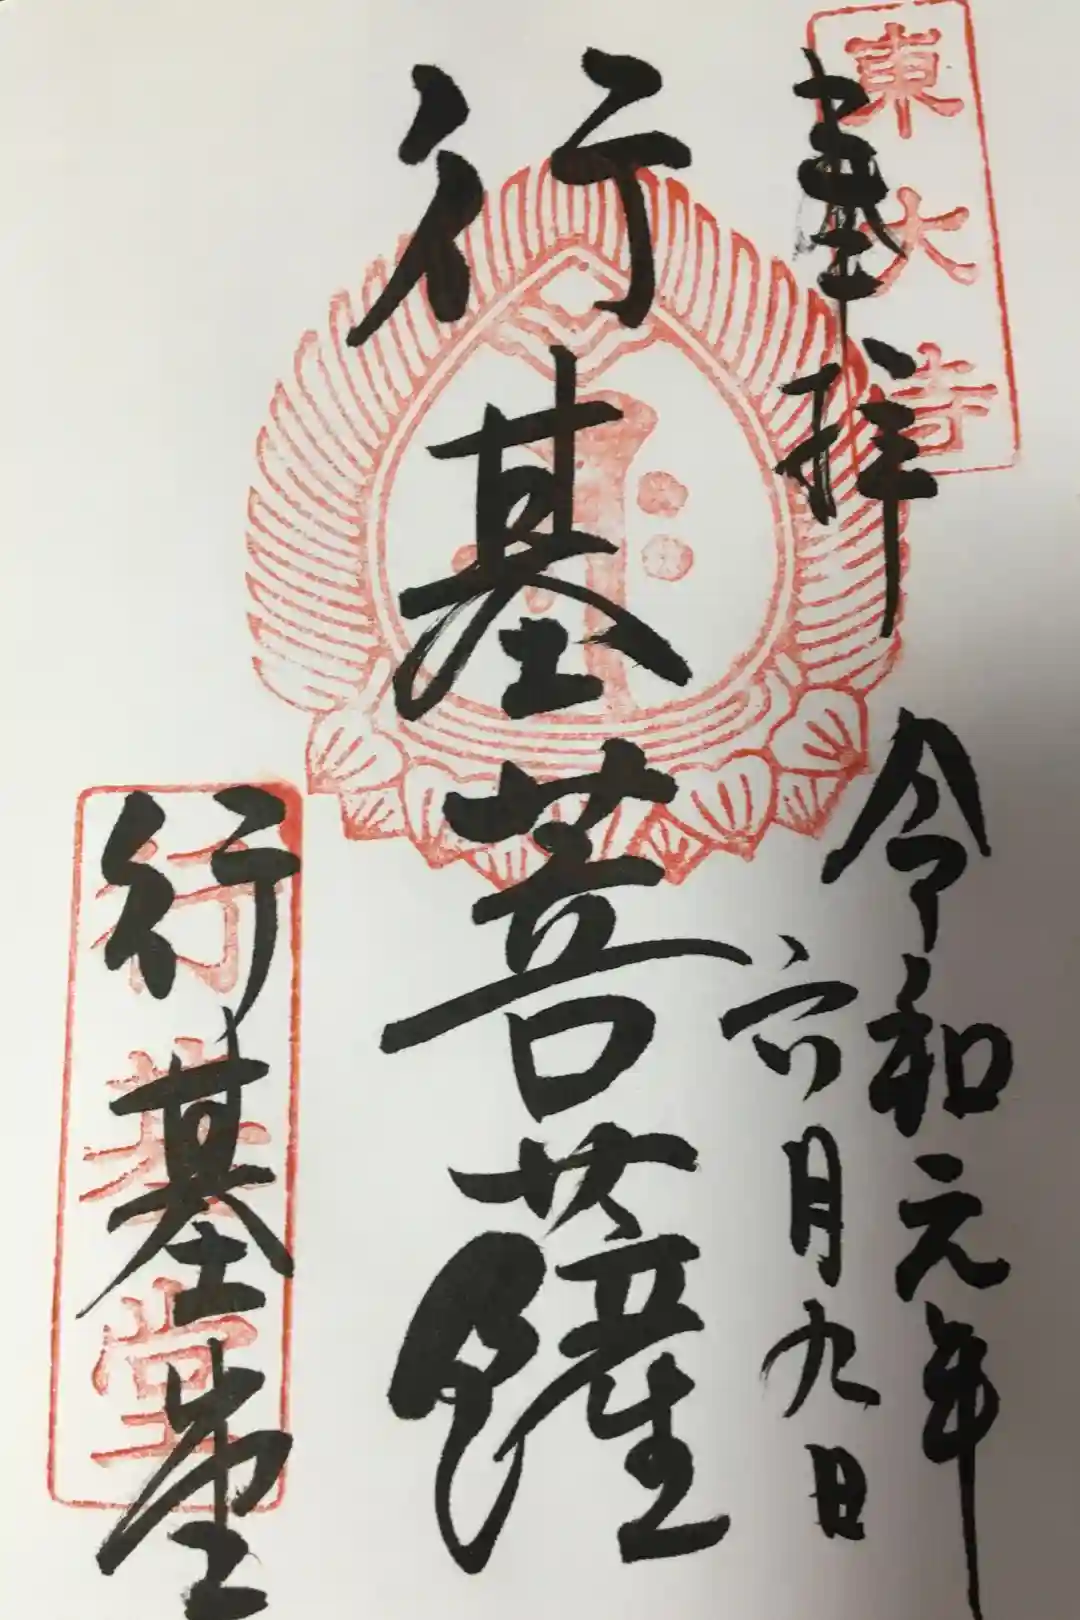 東大寺
奉拝
令和元年
六月九日
行基菩薩
行基堂
行基堂